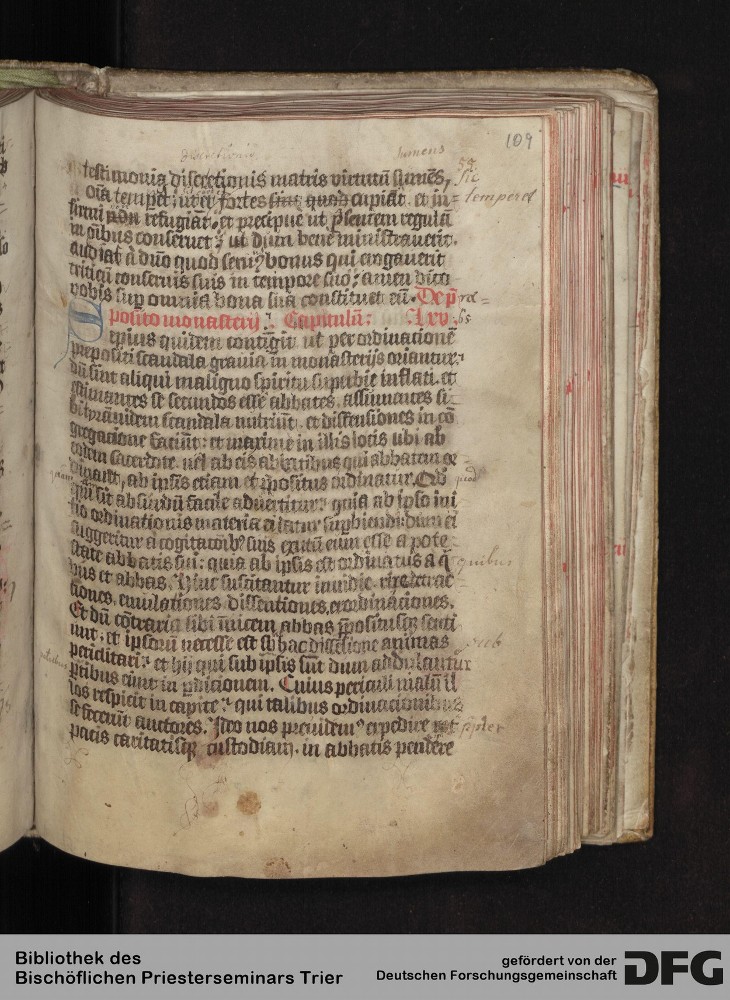 109
discretionis sumens
testimonia discretionis matris virtutū sumēs, 59
oīa temperet ut et fortes sint quod cupiāt. et in= sic temperet
firmi nōn refugiāt. et precipue ut p̄sentem regulā
in oībus conseruet ut dum bene ministrauerit.
audiat a dn̄o quod seruꝯ bonus qui erogauerit
triticū conseruis suis in tempore suo: amen dico
vobis sup̄ omnia bona sua constituet eū. De p̄ re=
posito monasterij. Capitulū: lxv. 65
Sepius quidem contigit ut per ordinationē
prepositi scandala grauia in monasterijs oriantur.
dū sint aliqui maligno spiritu superbie inflati. et
estimantes se secundos esse abbates. assumentes si=
bi tyrānidem scandala nutriūt. et dissensiones in cō
gregacione faciūt: et maxime in illis locis ubi ab
eodem sacerdote. uel ab eis abbatibus qui abbatem or=
dinant, ab ipsis etiam et p̄positus ordinatur. Qd̄ quod
quā sit absurdū facile aduertitur: quia ab ipso ini
tio ordinationis materia ei datur sup̄biendi. dum ei
suggeritur a cogitatōibꝰ suis exutū eum esse a pote
state abbatis sui: quia ab ipsis est ordinatus a q̄ quibus
bus et abbas. Hinc suscitantur inuidie. rixe. detrac
tiones. emulationes. dissentiones. exordinaciones.
Et dū cōtraria sibi īnuicem abbas p̄positusqꝫ senti
unt: et ipsorū necesse est sb̄ hac dissēsione animas sub
periclitari: et hij qui sub ipsis sūt dum adulantur
p̄tibus eunt in p̄ditionem. Cuius periculi malū il
los respicit in capite: qui talibus ordinacionibus
se fecerūt auctores. Ideo nos preuidemꝰ expedire ꝓpt̄ propter
pacis caritatisqꝫ custodiam. in abbatis pendere
Bibliothek des
Bischöflichen Priesterseminars Trier
gefördert von der
Deutschen Forschungsgemeinschaft
DFG